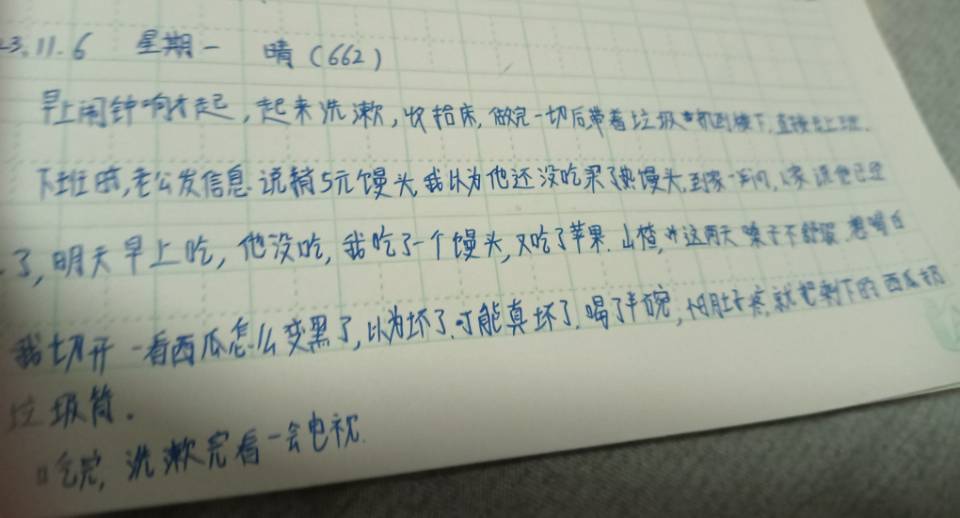 23.11.6 星期一 晴(662)
早上闹钟响才起,起来洗漱,收拾床,做完一切后带着垃圾 到楼下,直接去上班.
下班时,老公发信息.说稍5元馒头,我以为他还没吃买了热馒头,到家一问,人家说他已经
了,明天早上吃,他没吃,我吃了一个馒头,又吃了苹果.山楂,这两天嗓子不舒服.想喝
我切开一看西瓜怎么变黑了,以为坏了.可能真坏了.喝了半碗,怕肚子疼,就把剩下的西瓜扔
垃圾筒.
吃完,洗漱完看一会电视.